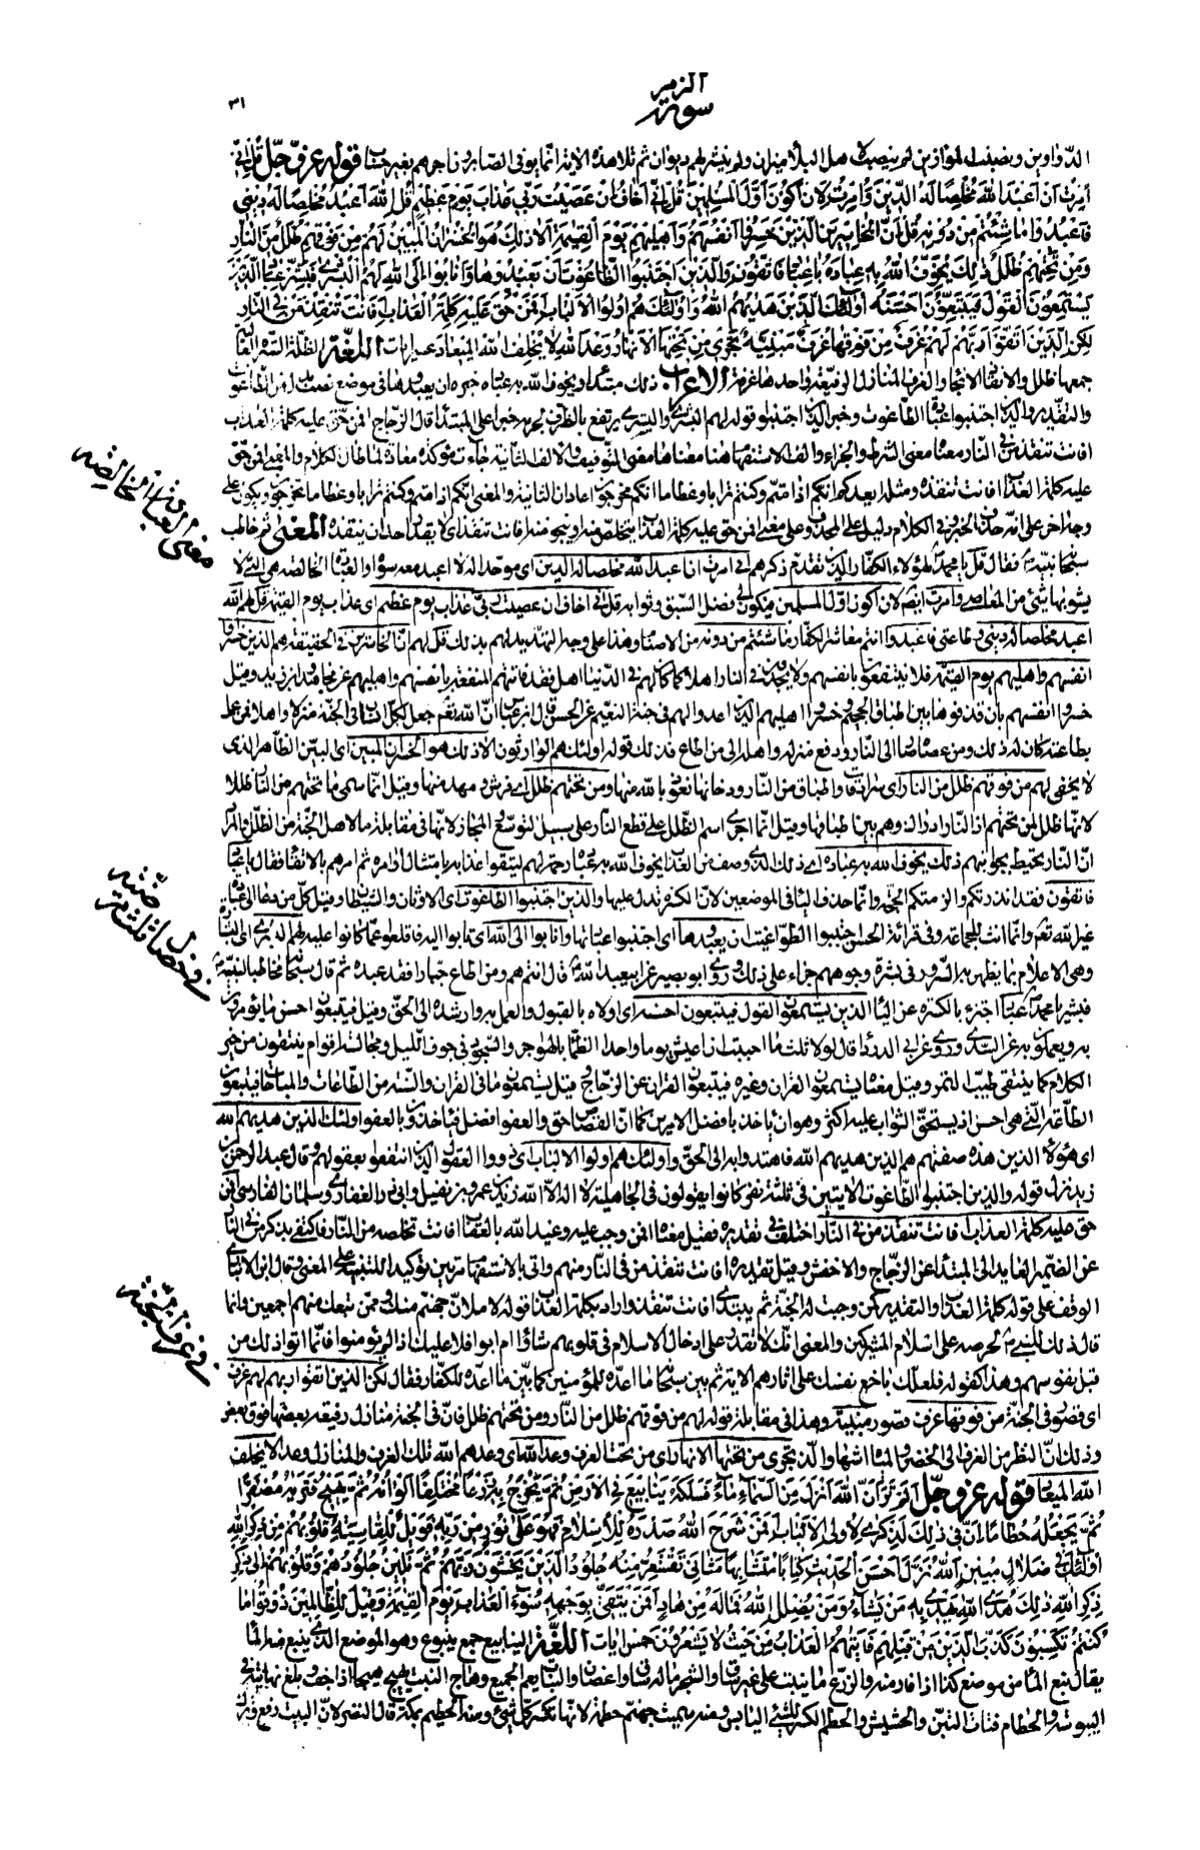 الزمر
سورة
٣١
الدّواوين ونصبت الموازين لم ينصب لاهل البلاء ميزان ولم ينشر لهم ديوان ثم تلا هذه الاية انّما يوفى الصّابرون اجرهم بغير حساب قوله عزّ وجلّ قُل اِنّي
اُمِرْتُ اَنْ اَعْبُدَ اللهَ مُخْلِصًا لَهُ الدّينَ وَاُمِرْتُ لِاَنْ اَكُونَ اَوَّلَ المُسْلِمينَ قُلْ اِنّي اَخافُ اِنْ عَصَيْتُ رَبّي عَذابَ يَوْمٍ عَظيمٍ قُلِ اللهَ اَعْبُدُ مُخْلِصًا لَهُ ديني
فَاعْبُدُوا ما شِئْتُمْ مِنْ دُونِهِ قُلْ اِنَّ الخاسِرينَ الَّذينَ خَسِرُوا اَنْفُسَهُمْ وَاَهْليهِمْ يَوْمَ القِيمَةِ اَلا ذلِكَ هُوَ الخُسْرانُ المُبينُ لَهُمْ مِنْ فَوْقِهِمْ ظُلَلٌ مِنَ النّارِ
وَمِنْ تَحْتِهِمْ ظُلَلٌ ذلِكَ يُخَوِّفُ اللهُ بِهِ عِبادَهُ يا عِبادِ فَاتَّقُونِ وَالَّذينَ اجْتَنَبُوا الطّاغُوتَ اَنْ يَعْبُدُوها وَاَنابُوا اِلَى اللهِ لَهُمُ البُشْرى فَبَشِّرْ عِبادِ الَّذينَ
يَسْتَمِعُونَ القَوْلَ فَيَتَّبِعُونَ اَحْسَنَهُ اُولئِكَ الَّذينَ هَديهُمُ اللهُ وَاُولئِكَ هُمْ اُولُوا الاَلْبابِ اَفَمَنْ حَقَّ عَلَيْهِ كَلِمَةُ العَذابِ اَفَاَنْتَ تُنْقِذُ مَنْ فِي النّارِ
لكِنِ الَّذينَ اتَّقَوْا رَبَّهُمْ لَهُمْ غُرَفٌ مِنْ فَوْقِها غُرَفٌ مَبْنِيَّةٌ تَجْري مِنْ تَحْتِها الاَنْهارُ وَعْدَ اللهِ لا يُخْلِفُ اللهُ الميعادَ عشر ايات اللغة الظلّة السترة العالية
جمعها ظلل والانقاذ الانجاء والغرف المنازل الرفيعة واحدها غرفة الاعراب ذلك مبتدا ويخوف الله به عباده خبره ان يعبدوها في موضع نصب بدل من الطاغوت
والتقدير والذين اجتنبوا عبادة الطّاغوت وخبر الذين اجتنبوا قوله لهم البشرى والبشرى يرتفع بالظرف لجريه خبرا على المبتدا قال الزّجاج افمن حق عليه كلمة العذاب
افانت تنقذ من في النار معناه معنى الشرط والجزاء والف الاستفهام هنا معناها معنى التوقيف والالف الثانية جاءت مؤكدة معادة لما طال الكلام والمعنى افمن حقّ
عليه كلمة العذاب افانت تنقذه ومثله ايعدكم انكم اذا متم وكنتم ترابا وعظاما انكم مخرجون اعاد ان الثانية والمعنى انكم اذا متم وكنتم ترابا وعظاما تخرجون ويكون على
وجه اخر على انّه حذف الخبر وفي الكلام دليل على المحذوف وعلى معنى افمن حق عليه كلمة العذاب يتخلص منه او ينجو منه افانت تنقذه اي لا يقدر احد ان ينقذه المعنى ثم خاطب
سبحانه نبيّه فقال قل يا محمد لهؤلاء الكفار الذين تقدم ذكرهم اني امرت ان اعبد الله مخلصا له الدين اي موحدا له لا اعبد معه سواه والعبادة الخالصة هي التي لا
يشوبها شئ من المعاصي وامرت ايضا لان اكون اوّل المسلمين فيكون لي فضل السّبق وثوابه قل اني اخاف ان عصيت ربّي عذاب يوم عظيم اي عذاب يوم القيمة قل لهم الله
اعبد مخلصا له ديني وطاعتي فاعبدوا انتم معاشر الكفار ما شئتم من دونه من الاصنام وهذا على وجه التهديد لهم بذلك قل لهم انّ الخاسرين في الحقيقة هم الذين خسروا
انفسهم واهليهم يوم القيمة فلا ينتفعون بانفسهم ولا يجدون في النار اهلا كما كان لهم في الدّنيا اهل فقد فاتهم المنفعة بانفسهم واهليهم عن مجاهد وابن زيد وقيل
خسروا انفسهم بان قذفوها بين اطباق الجحيم وخسروا اهليهم الذين اعدوا لهم في جنة النعيم عن الحسن قال ابن عباس انّ الله تعالى جعل لكل انسان في الجنّة منزلا واهلا فمن عمل
بطاعته كان له ذلك ومن عصاه صار الى النّار ودفع منزله واهله الى من اطاع فذلك قوله اولئك هم الوارثون الا ذلك هو الخسران المبين اي البيّن الظّاهر الذي
لا يخفى لهم من فوقهم ظلل من النار اي سرادقات واطباق من النّار ودخانها نعوذ بالله منها ومن تحتهم ظلل اي فرش ومهد منها وقيل انّما سمى ما تحتهم من النّار ظللا
لانّها ظلل لمن تحتهم اذ النّار ادراك وهم بين اطباقها وقيل انّما اجرى اسم الظّلل على قطع النار على سبيل التوسّع والمجاز لانّها في مقابلة ما لاهل الجنّة من الظّلل والمراد
انّ النّار تحيط بجوانبهم ذلك يخوف الله به عباده اي ذلك الذي وصف من العذاب يخوف الله به عباده رحمة لهم ليتقوا عذابه بامتثال اوامره ثم امرهم بالاتقاء فقال يا عباد
فاتّقون فقد انذرتكم والزمتكم الحجّة وانّما حذف الياء في الموضعين لانّ الكسرة تدل عليها والذين اجتنبوا الطاغوت اي الاوثان والشيطان وقيل كلّ من دعا الى عبادة
غير الله تعالى وانّما انث للجماعة وفي قراءة الحسن اجتنبوا الطّواغيت ان يعبدوها اي اجتنبوا عبادتها وانابوا الى الله اي تابوا اليه فاقلعوا عمّا كانوا عليه لهم البشرى اي البشارة
وهي الاعلام بما يظهر به السّرور في بشرة وجوههم جزاء على ذلك وروى ابو بصير عن ابي عبد الله قال انتم هم ومن اطاع جبارا فقد عبده ثم قال سبحانه مخاطبا لنبيّه
فبشّر يا محمد عباد اجتزء بالكسرة عن الياء الذين يستمعون القول فيتّبعون احسنه اي اولاه بالقبول والعمل به وارشده الى الحقّ وقيل فيتّبعون احسن ما يؤمرون
به ويعملون به عن السدّي وروى عن ابي الدرداء قال لولا ثلث ما احببت ان اعيش يوما واحدا الظّماء بالهواجر والسّجود في جوف الّليل ومجالسة اقوام ينتقون من خير
الكلام كما ينتقى طيّب التمر وقيل معناه يستمعون القران وغيره فيتبعون القران عن الزجّاج وقيل يستمعون ما في القران والسّنة من الطّاعات والمباحات فيتبعون
الطّاعة الّتي هي احسن اذ يستحقّ الثّواب عليه اكثر وهو ان ياخذ بافضل الامرين كما انّ القصاص حق والعفو افضل فياخذون بالعفو اولئك الذين هديهم الله
اي هؤلاء الذين هذه صفتهم هم الذين هديهم الله فاهتدوا به الى الحقّ واولئك هم اولوا الالباب اي ذووا العقول الذين انتفعوا بعقولهم وقال عبد الرحمن بن
زيد نزل قوله والذين اجتنبوا الطّاغوت الايتين في ثلثة نفر كانوا يقولون في الجاهلية لا اله الاّ الله زيد بن عمرو بن نفيل وابي ذر الغفاري وسلمان الفارسي افمن
حقّ عليه كلمة العذاب افانت تنقذ من في النّار اختلف في تقديره فقيل معناه افمن وجب عليه وعيد الله بالعقاب افانت تخلصه من النّار فاكتفى بذكر من في النّار
عن الضّمير العايد الى المبتدا عن الزجّاج والاخفش وقيل تقديره افانت تنقذ من في النّار منهم واتى بالاستفهام مرتين توكيدا للتنبيه على المعنى وقال ابن الانباري
الوقف على قوله كلمة العذاب والتقدير كمن وجبت له الجنّة ثم يبتدي افانت تنقذ واراد بكلمة العذاب قوله لاملانّ جهنّم منك وممّن تبعك منهم اجمعين وانّما
قال ذلك للنّبي لحرصه على اسلام المشركين والمعنى انّك لا تقدر على ادخال الاسلام في قلوبهم شاؤا ام ابوا فلا عليك اذا لم يؤمنوا فانّما اتوا ذلك من
قبل نفوسهم وهذا كقوله فلعلّك باخع نفسك على اثارهم الاية ثم بين سبحانه ما اعدّه للمؤمنين كما بيّن ما اعدّه للكفّار فقال لكن الذين اتقوا ربهم لهم غرف
اي قصور في الجنّة من فوقها غرف قصور مبنيّة وهذا في مقابلة قوله لهم من فوقهم ظلل من النّار ومن تحتهم ظلل فانّ في الجنّة منازل رفيعة بعضها فوق بعض
وذلك انّ النظر من الغرف الى الخضر والمياه اشهى والذّ تجري من تحتها الانهار اي من تحت الغرف وعد الله اي وعدهم الله تلك الغرف والمنازل وعدا لا يخلف
الله الميعاد قوله عزّ وجلّ اَلَمْ تَرَ اَنَّ اللهَ اَنْزَلَ مِنَ السَّماءِ ماءً فَسَلَكَهُ يَنابيعَ فِي الاَرْضِ ثُمَّ يُخْرِجُ بِهِ زَرْعًا مُخْتَلِفًا اَلْوانُهُ ثُمَّ يَهيجُ فَتَريهُ مُصْفَرًّا
ثُمَّ يَجْعَلُهُ حُطامًا اِنَّ في ذلِكَ لَذِكْرى لِاُولِي الاَلْبابِ اَفَمَنْ شَرَحَ اللهُ صَدْرَهُ لِلْاِسْلامِ فَهُوَ عَلى نُورٍ مِنْ رَبِّهِ فَوَيْلٌ لِلْقاسِيَةِ قُلُوبُهُمْ مِنْ ذِكْرِ اللهِ
اُولئِكَ في ضَلالٍ مُبينٍ اَللهُ نَزَّلَ اَحْسَنَ الحَديثِ كِتابًا مُتَشابِهًا مَثانِيَ تَقْشَعِرُّ مِنْهُ جُلُودُ الَّذينَ يَخْشَوْنَ رَبَّهُمْ ثُمَّ تَلينُ جُلُودُهُمْ وَقُلُوبُهُمْ اِلى ذِكْرِ
ذِكْرِ اللهِ ذلِكَ هُدَى اللهِ يَهْدي بِهِ مَنْ يَشاءُ وَمَنْ يُضْلِلِ اللهُ فَما لَهُ مِنْ هادٍ اَفَمَنْ يَتَّقي بِوَجْهِهِ سُوءَ العَذابِ يَوْمَ القِيمَةِ وَقيلَ لِلظّالِمينَ ذُوقُوا ما
كُنْتُمْ تَكْسِبُونَ كَذَّبَ الَّذينَ مِنْ قَبْلِهِمْ فَاَتيهُمُ العَذابُ مِنْ حَيْثُ لا يَشْعُرُونَ خمس ايات اللغة الينابيع جمع ينبوع وهو الموضع الذي ينبع منه الماء
يقال نبع الماء من موضع كذا اذا فار منه والزرع ما ينبت على غير ساق والشجر ما له ساق واغصان والنبات يعم الجميع وهاج النبت يهيج هيجا اذا جف وبلغ نهايته في
اليبوسة والحطام فتات التبن والحشيش والحطم الكسر للشئ اليابس ومنه سميت جهنّم حطمة لانّها تكسر كلّ شئ ومنه الحطيم بمكة قال النضر لانّ البيت رفع وترك
معنى العبادة الخالصة